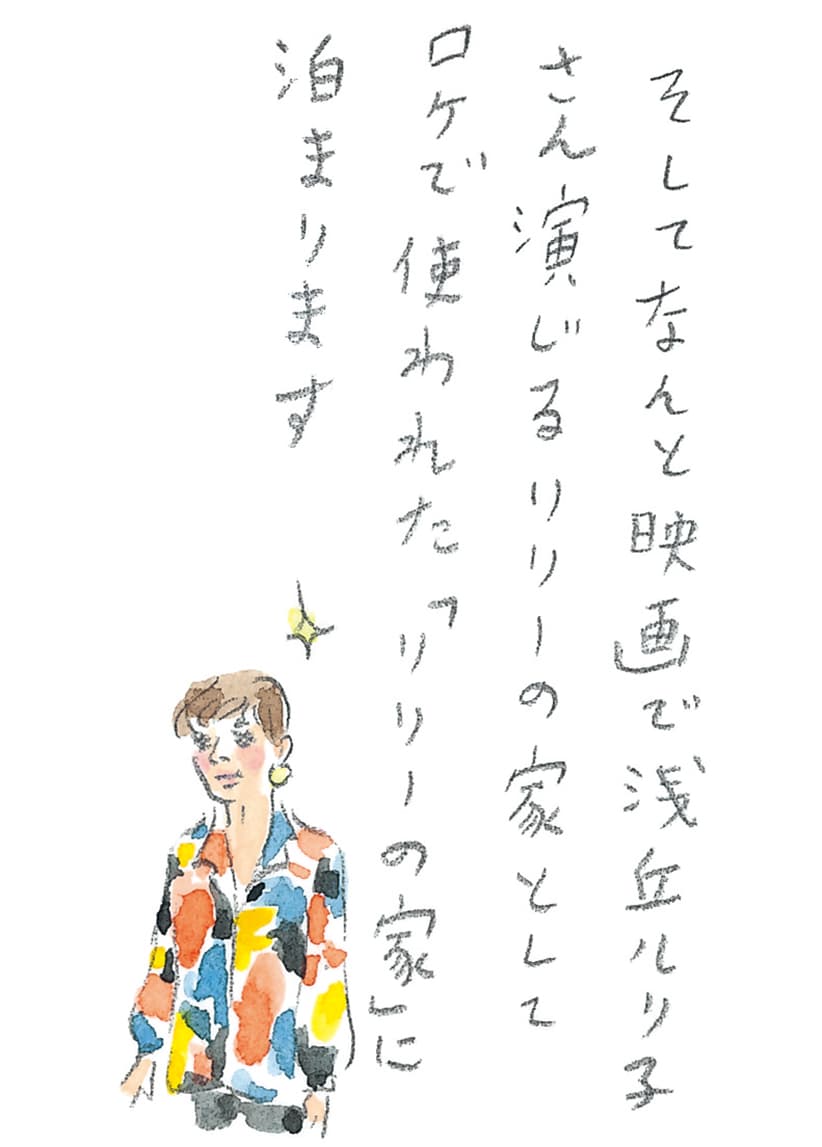 そしてなんと映画で浅丘ルリ子
さん演じるリリーの家として
ロケで使われた「リリーの家」に
泊まります